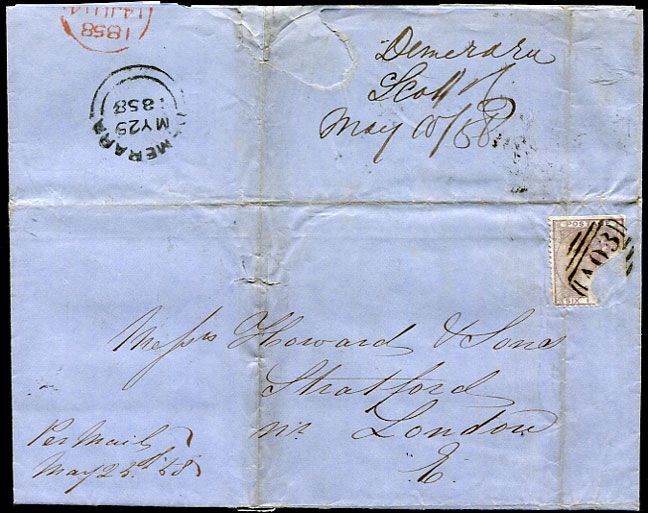 14 JU
1858
DEMERARA
MY 25
1858
Demerara
Scott
May 10/58
POST
A03
SIX
Messrs Howard & Sons
Stratford
nr. London
E.
Per Mail
May 25th 58